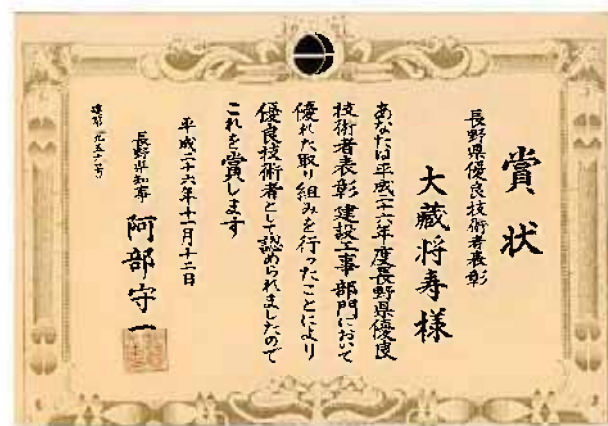 賞状
長野県優良技術者表彰
大蔵将寿様
あなたは平成二十六年度長野県優良
技術者表彰建設工事部門において
優れた取り組みを行ったことにより
優良技術者として認められましたので
これを賞します
平成二十六年十一月十二日
長野県知事 阿部守一